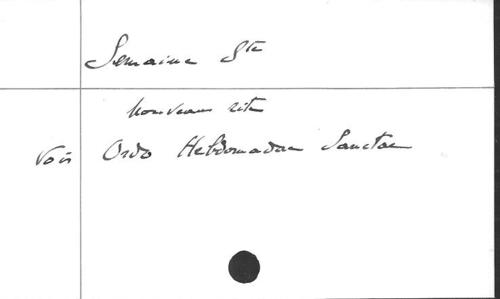 Semaine Ste
Nouveau rite
Voir Ordo Hebdomadae Sanctae